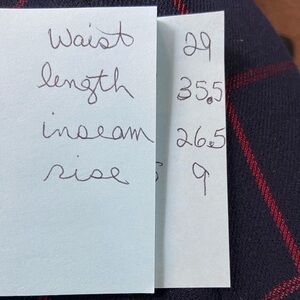 Waist 29
length 35.5
inseam 26.5
rise 9